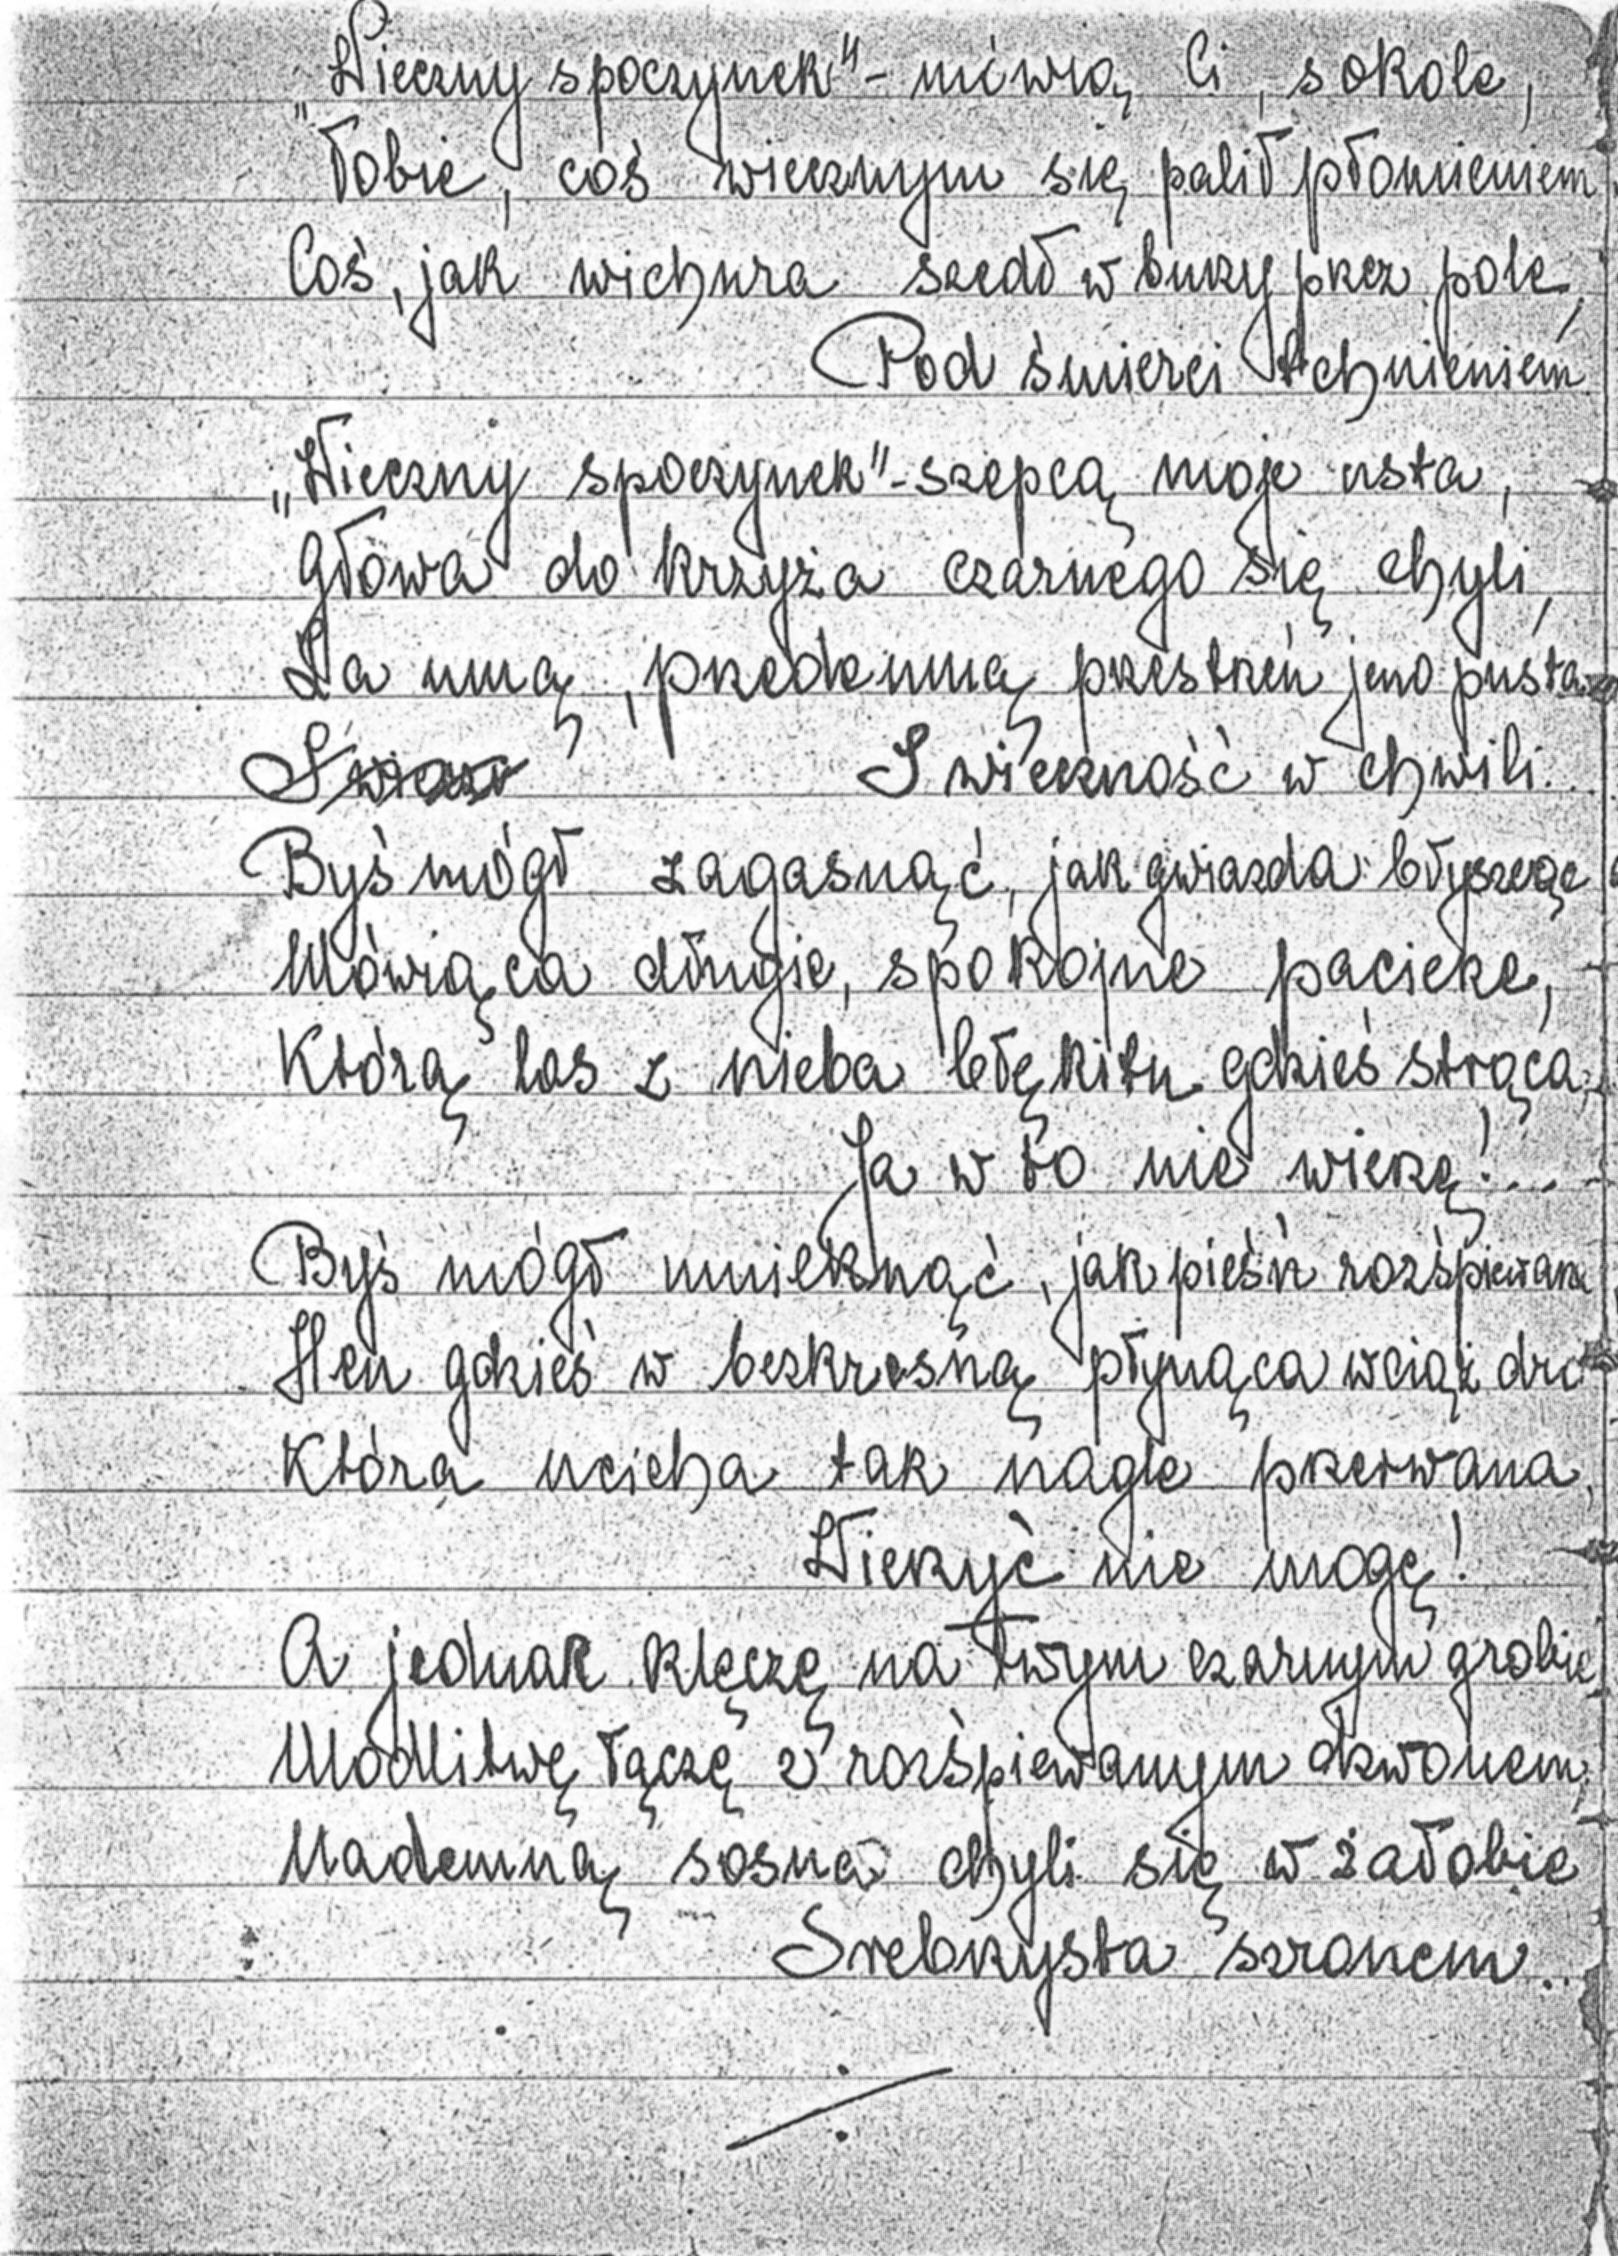 „Wieczny spoczynek" - mówią Ci, sokole,
Tobie, coś wiecznym się palił płomieniem
Coś, jak wichura szedł w burzy przez pole,
Pod śmierci tchnieniem
„Wieczny spoczynek" - szepcą moje usta,
Głowa do krzyża czarnego się chyli,
Za mną, przedemną przestrzeń jeno pusta
I wieczność w chwili...
Byś mógł zagasnąć, jak gwiazda błyszcząca
Mówiąca długie, spokojne pacierze,
Którą los z nieba błękitu gdzieś strąca,
Ja w to nie wierzę!...
Byś mógł umilknąć, jak pieśń rozśpiewana,
Hen gdzieś w bezkresną płynąca wciąż dro
Która ucicha tak nagle przerwana,
Wierzyć nie mogę!
A jednak klęczę na Twym czarnym grobie,
Modlitwę łączę z rozśpiewanym dzwonem,
Nademną sosna chyli się w żałobie
Srebrzysta szronem...